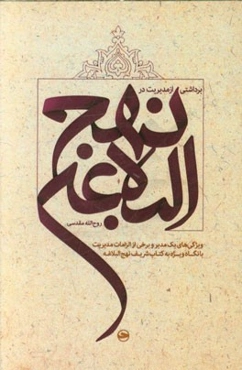 برداشتی از مدیریت در
نهج
البلاغه
روح‌الله مقدسی
ویژگی‌های یک مدیر و برخی از الزامات مدیریت
با نگاه ویژه به کتاب شریف نهج البلاغه